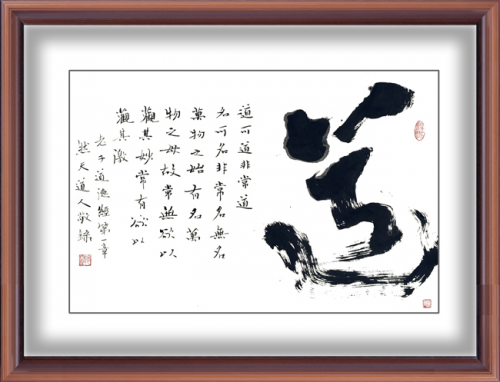 道
道可道非常道
名可名非常名無名
萬物之始有名萬
物之母故常無欲以
觀其妙常有欲以
觀其徼
老子道德經第一章
天道人敬錄